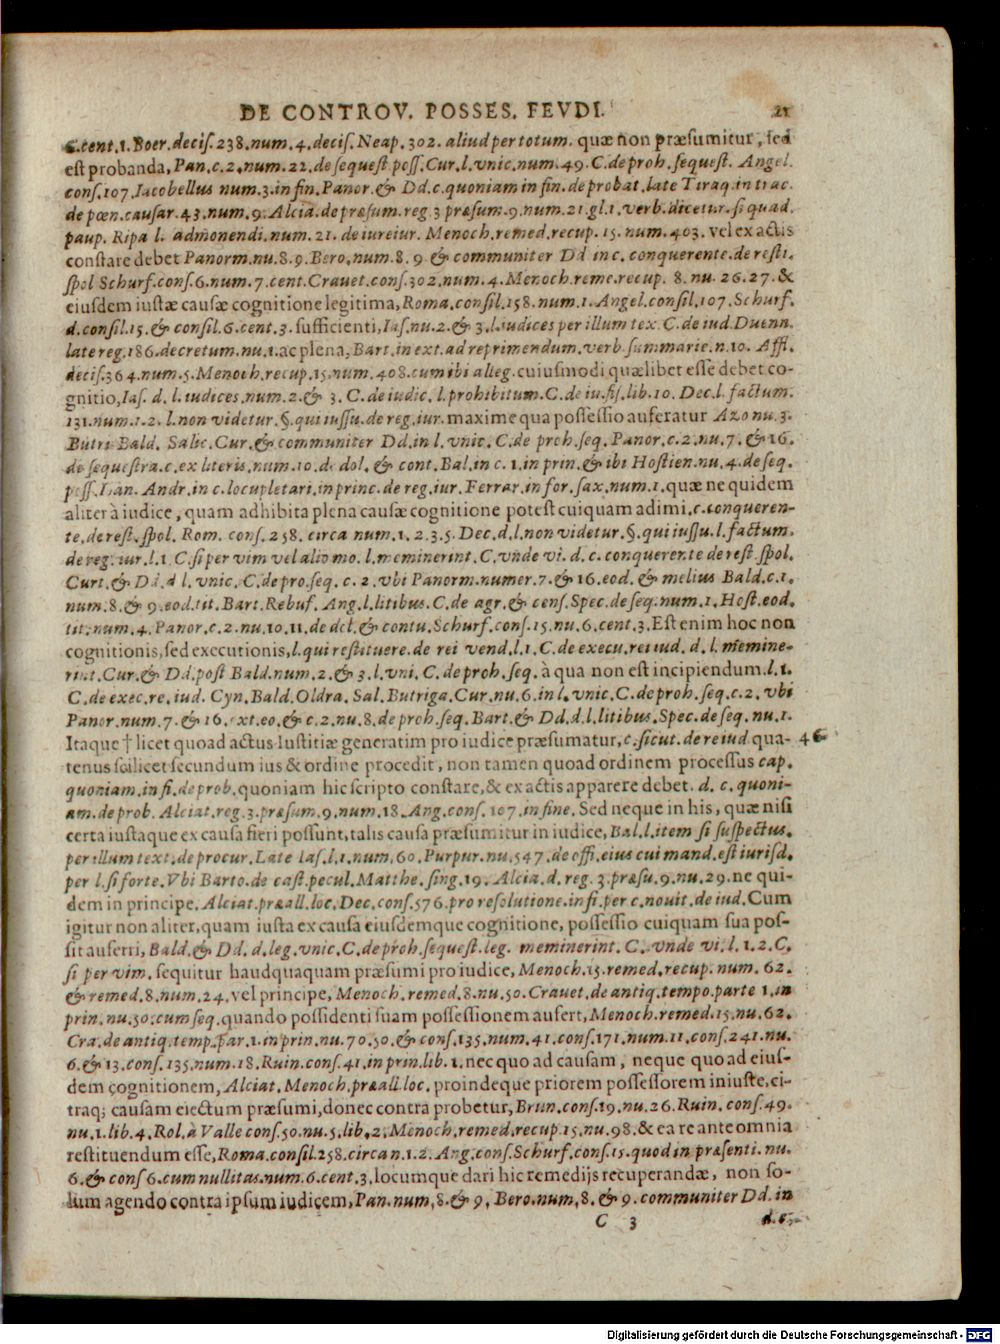 DE CONTROV. POSSES. FEVDI. 21
6.cent.1. Boer.decis.238.num.4.decis.Neap.302. aliud per totum. quæ non præsumitur, sed
est probanda, Pan.c.2.num.22.de sequest.poss.Cur.l.vnic.num.49. C.de proh.sequest. Angel.
cons.107.Iacobellus num.3.in fin.Panor.& Dd.c.quoniam in fin.de probat.late Tiraq.in trac.
de pœn.causar.43.num.9.Alcia.de præsum.reg.3 præsum.9.num.21.gl.1.verb.dicetur.si quad.
paup. Ripa l. admonendi.num.21. de iureiur. Menoch.remed.recup.15.num.403. vel ex actis
constare debet Panorm.nu.8.9.Bero.num.8.9 & communiter Dd in c.conquerente.de resti.
spol Schurf.cons.6.num.7.cent.Crauet.cons.302.num.4.Menoch.reme.recup.8.nu.26.27.&
eiusdem iustæ causæ cognitione legitima, Roma.consil.158.num.1.Angel.consil.107.Schurf.
d.consil.15.& consil.6.cent.3.sufficienti, Ias.nu.2.& 3.l.iudices per illum tex.C.de iud.Duenn.
late reg.186.decretum.nu.1.ac plena, Bart.in ext.ad reprimendum.verb.summarie.n.10. Affl.
decis.364.num.5.Menoch.recup.15.num.408.cum ibi alleg.cuiusmodi quælibet esse debet co-
gnitio, Ias. d. l. iudices.num.2.& 3. C.de iudic.l.prohibitum.C.de iu.fis.lib.10. Dec.l.factum.
131.num.1.2. l.non videtur.§.qui iussu.de reg.iur.maxime qua possessio auferatur Azo nu.3.
Butri Bald. Salic.Cur.& communiter Dd.in l.vnic. C.de proh.seq.Panor.c.2.nu.7.& 16.
de sequestra.c.ex literis.num.10.de dol.& cont.Bal.in c.1.in prin.& ibi Hostien.nu.4.de seq.
poss.Ioan. Andr.in c.locupletari.in princ.de reg.iur.Ferrar.in for.sax.num.1.quæ ne quidem
aliter à iudice, quam adhibita plena causæ cognitione potest cuiquam adimi, c.conqueren-
te.de rest.spol. Rom. cons.258.circa num.1.2.3.5. Dec.d.l.non videtur.§.qui iussu.l.factum.
de reg.iur.l.1 C.si per vim vel alio mo. l.meminerint.C.vnde vi.d.c.conquerente de rest.spol.
Curt.& Dd.d l.vnic.C.de pro.seq.c.2.vbi Panorm.numer.7.& 16.eod.& melius Bald.c.1.
num.8.& 9.eod.tit.Bart.Rebuf.Ang.l.litibus.C.de agr.& cens.Spec.de seq.num.1.Host.eod.
tit.num.4.Panor.c.2.nu.10.11.de dol.& contu.Schurf.cons.15.nu.6.cent.3.Est enim hoc non
cognitionis, sed executionis, l.qui restituere.de rei vend.l.1.C.de execu.rei iud.d.l.memine-
rint.Cur.& Dd.post Bald.num.2.& 3.l.vni.C.de proh.seq. à qua non est incipiendum.l.1.
C.de exec.re.iud. Cyn.Bald.Oldra.Sal.Butriga.Cur.nu.6.in l.vnic.C.de proh.seq.c.2.vbi
Panor.num.7.& 16.ext.eo.& c.2.nu.8.de proh.seq.Bart.& Dd.d.l.litibus.Spec.de seq.nu.1.
Itaque † licet quoad actus Iustitiæ generatim pro iudice præsumatur, c.sicut.de re iud qua- 46
tenus scilicet secundum ius & ordine procedit, non tamen quoad ordinem processus cap.
quoniam.in fi.de prob.quoniam hic scripto constare, & ex actis apparere debet. d.c.quoni-
am.de prob. Alciat.reg.3.præsum.9.num.18.Ang.cons.107.in fine. Sed neque in his, quæ nisi
certa iustaque ex causa fieri possunt, talis causa præsumitur in iudice, Bal.l.item si suspectus.
per illum text.de procur.Late Ias.l.1.num.60.Purpur.nu.547.de offi.eius cui mand.est iurisd.
per l.si forte.Vbi Barto.de cast.pecul.Matthe.sing.19.Alcia.d.reg.3.præsu.9.nu.29.ne qui-
dem in principe, Alciat.præall.loc.Dec.cons.576.pro resolutione.in fi.per c.nouit.de iud.Cum
igitur non aliter, quam iusta ex causa eiusdemque cognitione, possessio cuiquam sua pos-
sit auferri, Bald.& Dd.d.leg.vnic.C.de proh.sequest.leg. meminerint. C. vnde vi.l.1.2.C.
si per vim. sequitur haudquaquam præsumi pro iudice, Menoch.15.remed.recup.num.62.
& remed.8.num.24. vel principe, Menoch.remed.8.nu.50.Crauet.de antiq.tempo.parte 1.in
prin.nu.50.cum seq.quando possidenti suam possessionem aufert, Menoch.remed.15.nu.62.
Cra.de antiq.temp.par.1.in prin.nu.70.50.& cons.135.num.41.cons.171.num.11.cons.241.nu.
6.& 13.cons.135.num.18.Ruin.cons.41.in prin.lib.1.nec quo ad causam, neque quo ad eius-
dem cognitionem, Alciat.Menoch.præall.loc.proindeque priorem possessorem iniuste, ci-
traq; causam eiectum præsumi, donec contra probetur, Brun.cons.19.nu.26.Ruin.cons.49.
nu.1.lib.4.Rol.à Valle cons.50.nu.5.lib.2.Menoch.remed.recup.15.nu.98.& ea re ante omnia
restituendum esse, Roma.consil.258.circa n.1.2. Ang.cons.Schurf.cons.15.quod in præsenti.nu.
6.& cons 6.cum nullitas.num.6.cent.3.locumque dari hic remedijs recuperandæ, non so-
lum agendo contra ipsum iudicem, Pan.num.8.& 9.Bero.num.8.& 9.communiter Dd.in
C 3 d.c.
Digitalisierung gefördert durch die Deutsche Forschungsgemeinschaft - DFG